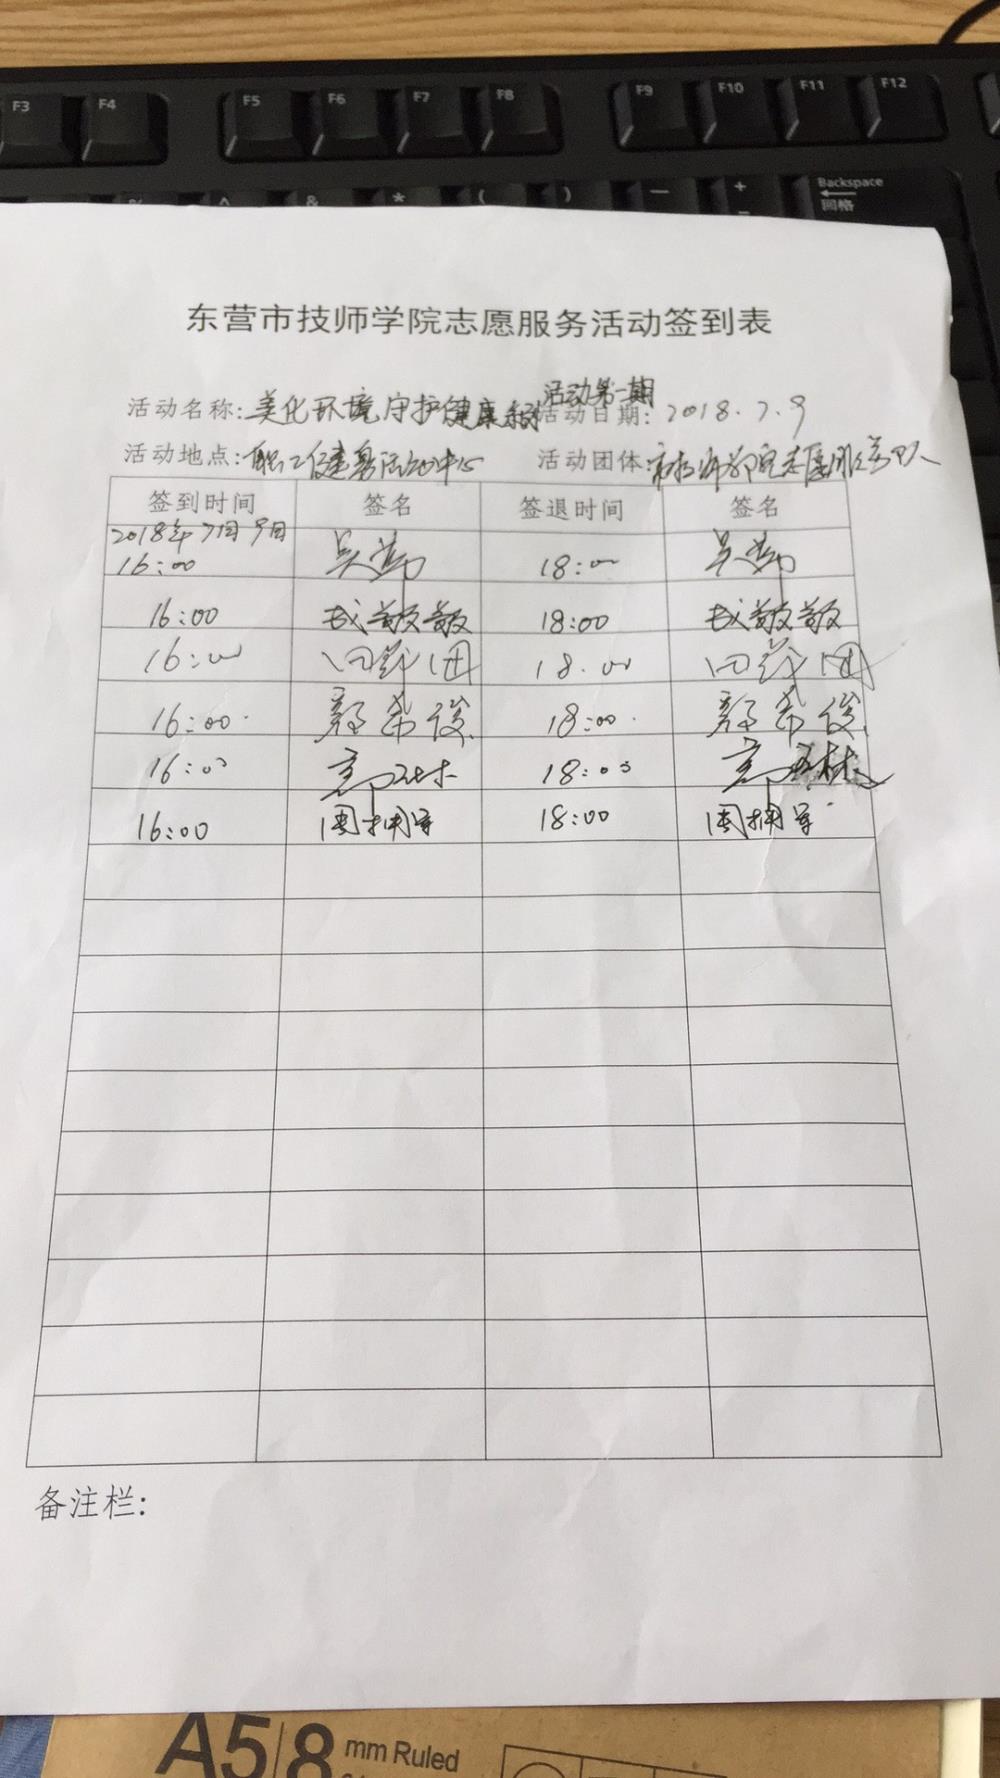 F3 F4 F5 F6 F7 F8 F9 F10 F11 F12
% ^ & * ( ) — + Backspace
回格
东营市技师学院志愿服务活动签到表
活动第一期
活动名称:美化环境守护健康 活动日期:2018.7.9
活动地点:职工健身活动中心 活动团体:市技师学院志愿服务队
签到时间 签名 签退时间 签名
2018年7月9日
16:00 18:00
16:00 成敬敬 18:00 成敬敬
16:00 18:00
16:00 18:00
16:00 18:00
16:00 周拥军 18:00 周拥军
备注栏:
A5 8 mm Ruled